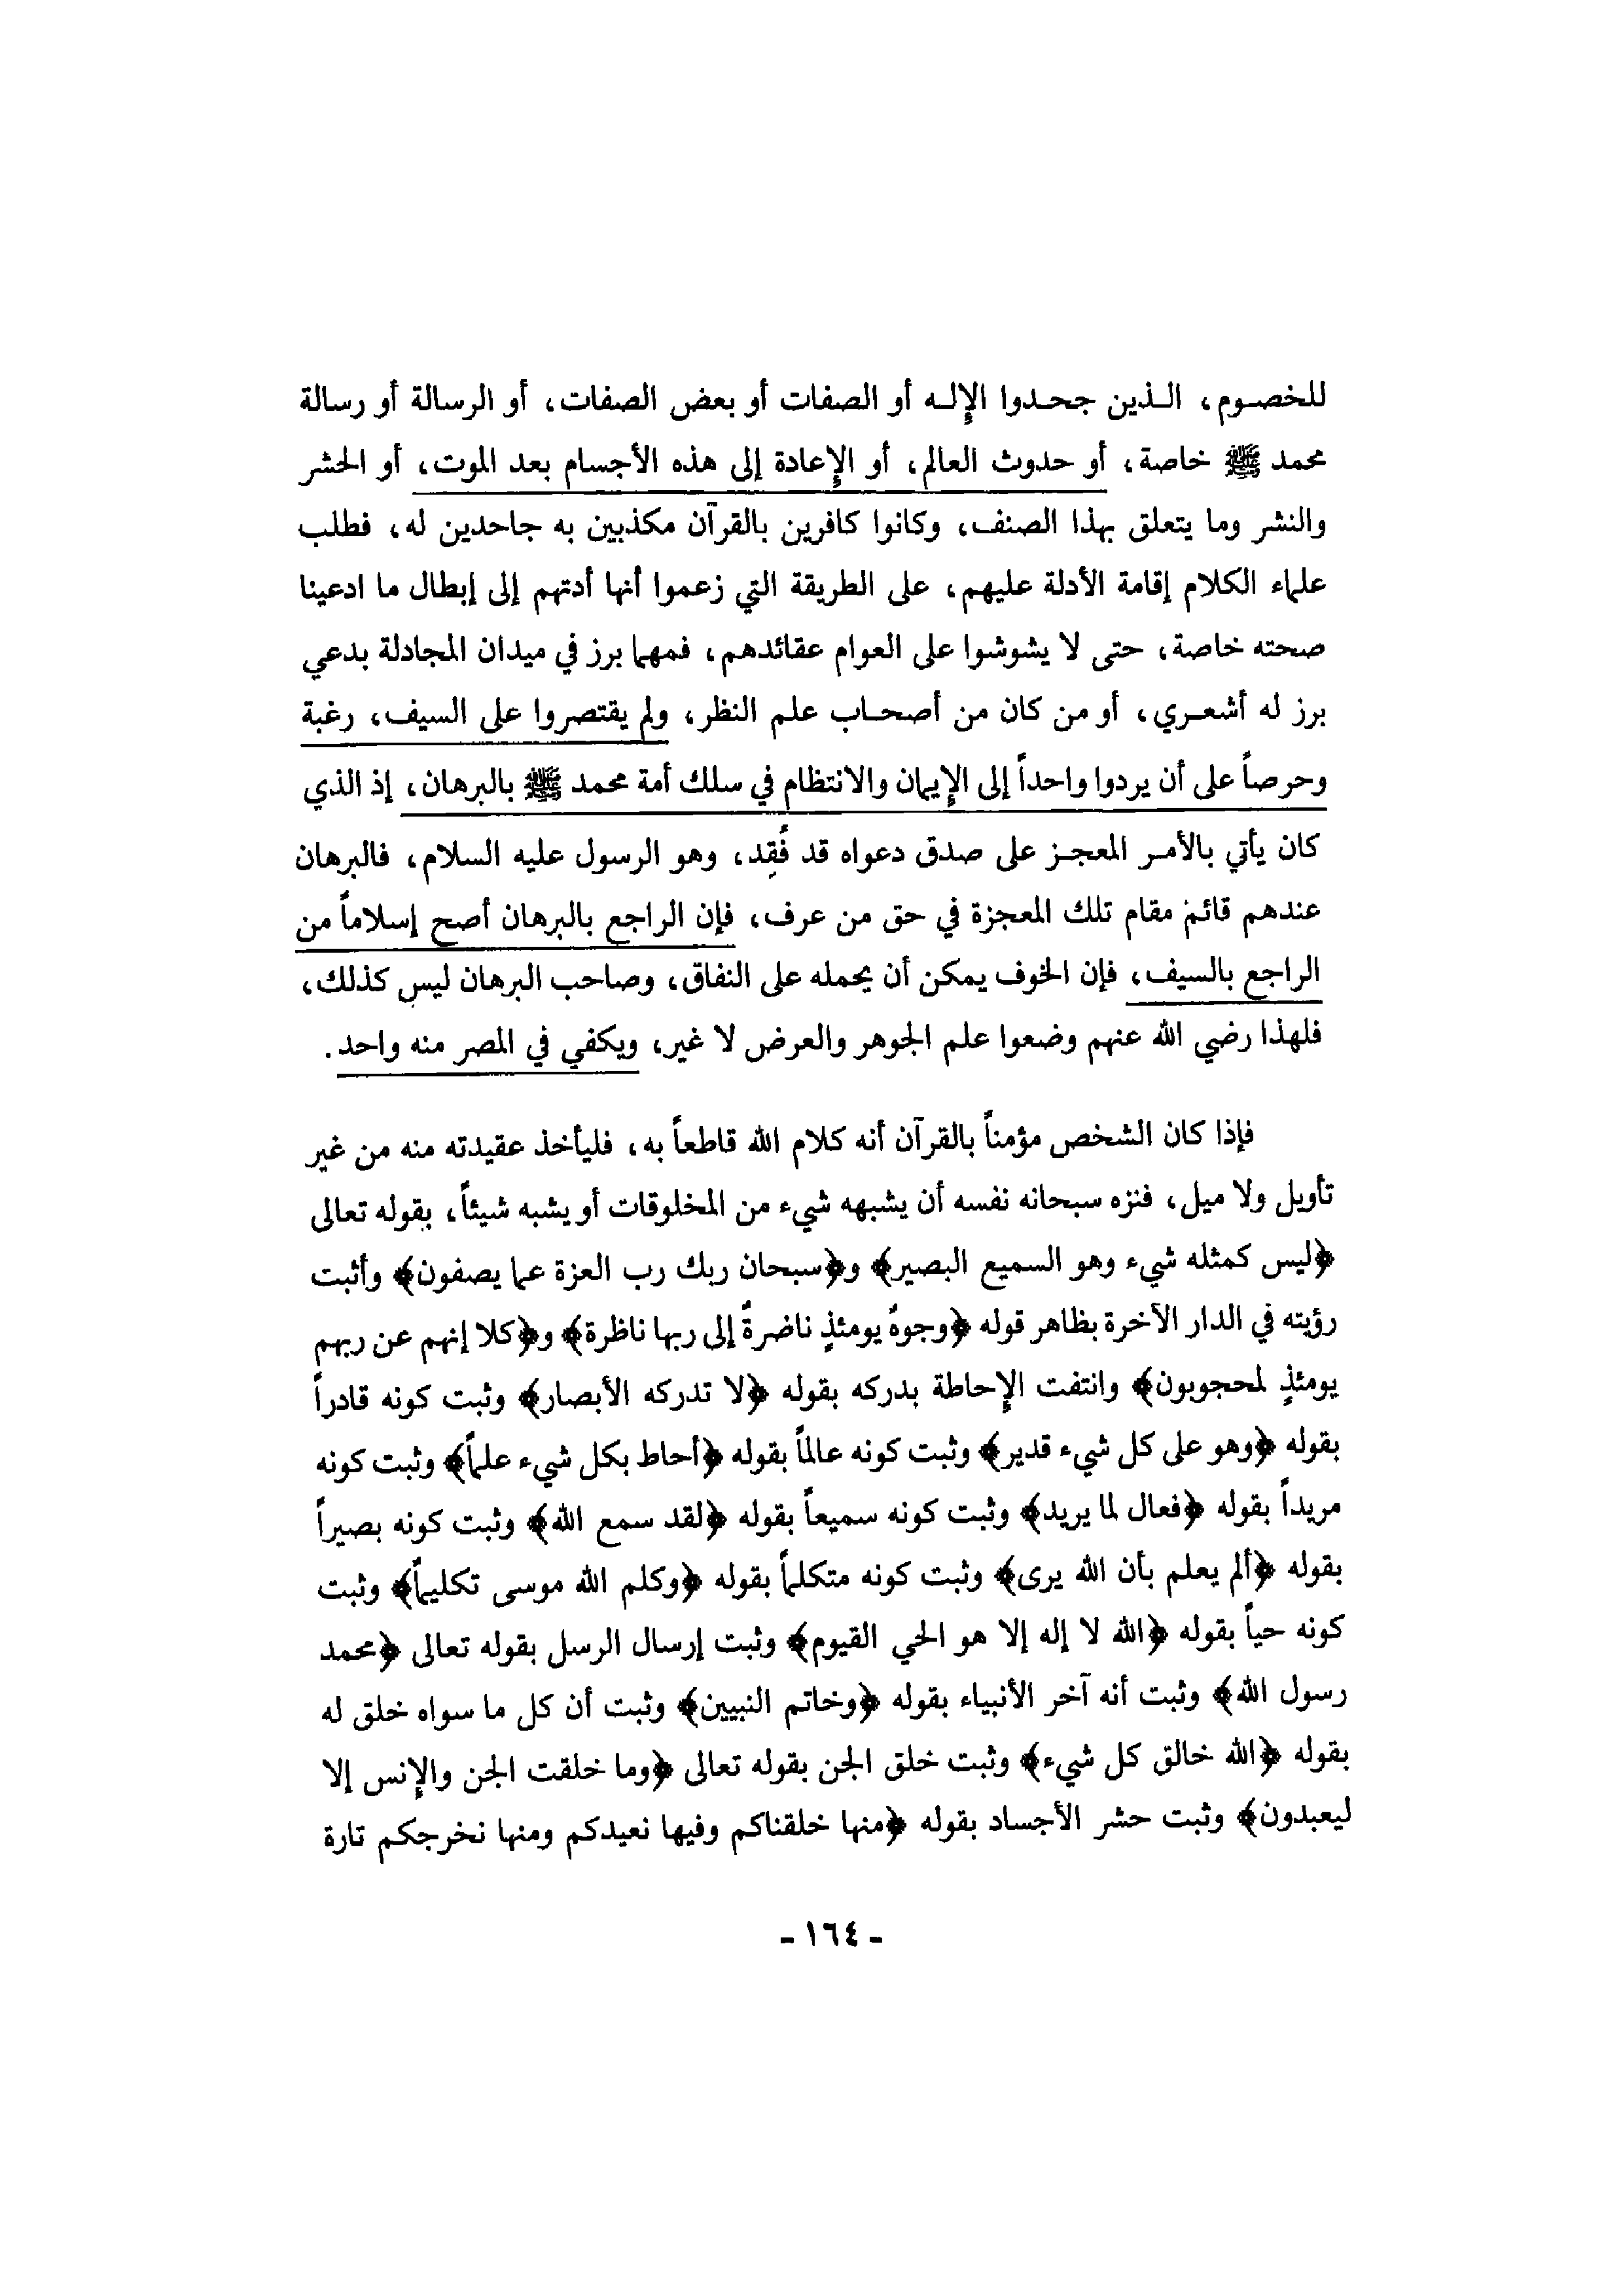 للخصوم، الذين جحدوا الإله أو الصفات أو بعض الصفات، أو الرسالة أو رسالة
محمد ﷺ خاصة، أو حدوث العالم، أو الإعادة إلى هذه الأجسام بعد الموت، أو الحشر
والنشر وما يتعلق بهذا الصنف، وكانوا كافرين بالقرآن مكذبين به جاحدين له، فطلب
علماء الكلام إقامة الأدلة عليهم، على الطريقة التي زعموا أنها أدتهم إلى إبطال ما ادعينا
صحته خاصة، حتى لا يشوشوا على العوام عقائدهم، فمهما برز في ميدان المجادلة بدعي
برز له أشعري، أو من كان من أصحاب علم النظر، ولم يقتصروا على السيف، رغبة
وحرصاً على أن يردوا واحداً إلى الإيمان والانتظام في سلك أمة محمد ﷺ بالبرهان، إذ الذي
كان يأتي بالأمر المعجز على صدق دعواه قد فُقِد، وهو الرسول عليه السلام، فالبرهان
عندهم قائم مقام تلك المعجزة في حق من عرف، فإن الراجع بالبرهان أصح إسلاماً من
الراجع بالسيف، فإن الخوف يمكن أن يحمله على النفاق، وصاحب البرهان ليس كذلك،
فلهذا رضي الله عنهم وضعوا علم الجوهر والعرض لا غير، ويكفي في المصر منه واحد.
فإذا كان الشخص مؤمناً بالقرآن أنه كلام الله قاطعاً به، فليأخذ عقيدته منه من غير
تأويل ولا ميل، فنزه سبحانه نفسه أن يشبهه شيء من المخلوقات أو يشبه شيئاً، بقوله تعالى
﴿ليس كمثله شيء وهو السميع البصير﴾ و﴿سبحان ربك رب العزة عما يصفون﴾ وأثبت
رؤيته في الدار الآخرة بظاهر قوله ﴿وجوهٌ يومئذٍ ناضرةٌ إلى ربها ناظرة﴾ و﴿كلا إنهم عن ربهم
يومئذٍ لمحجوبون﴾ وانتفت الإحاطة بدركه بقوله ﴿لا تدركه الأبصار﴾ وثبت كونه قادراً
بقوله ﴿وهو على كل شيء قدير﴾ وثبت كونه عالماً بقوله ﴿أحاط بكل شيء علماً﴾ وثبت كونه
مريداً بقوله ﴿فعال لما يريد﴾ وثبت كونه سميعاً بقوله ﴿لقد سمع الله﴾ وثبت كونه بصيراً
بقوله ﴿ألم يعلم بأن الله يرى﴾ وثبت كونه متكلماً بقوله ﴿وكلم الله موسى تكليماً﴾ وثبت
كونه حياً بقوله ﴿الله لا إله إلا هو الحي القيوم﴾ وثبت إرسال الرسل بقوله تعالى ﴿محمد
رسول الله﴾ وثبت أنه آخر الأنبياء بقوله ﴿وخاتم النبيين﴾ وثبت أن كل ما سواه خلق له
بقوله ﴿الله خالق كل شيء﴾ وثبت خلق الجن بقوله تعالى ﴿وما خلقت الجن والإنس إلا
ليعبدون﴾ وثبت حشر الأجساد بقوله ﴿منها خلقناكم وفيها نعيدكم ومنها نخرجكم تارة
- ١٦٤ -